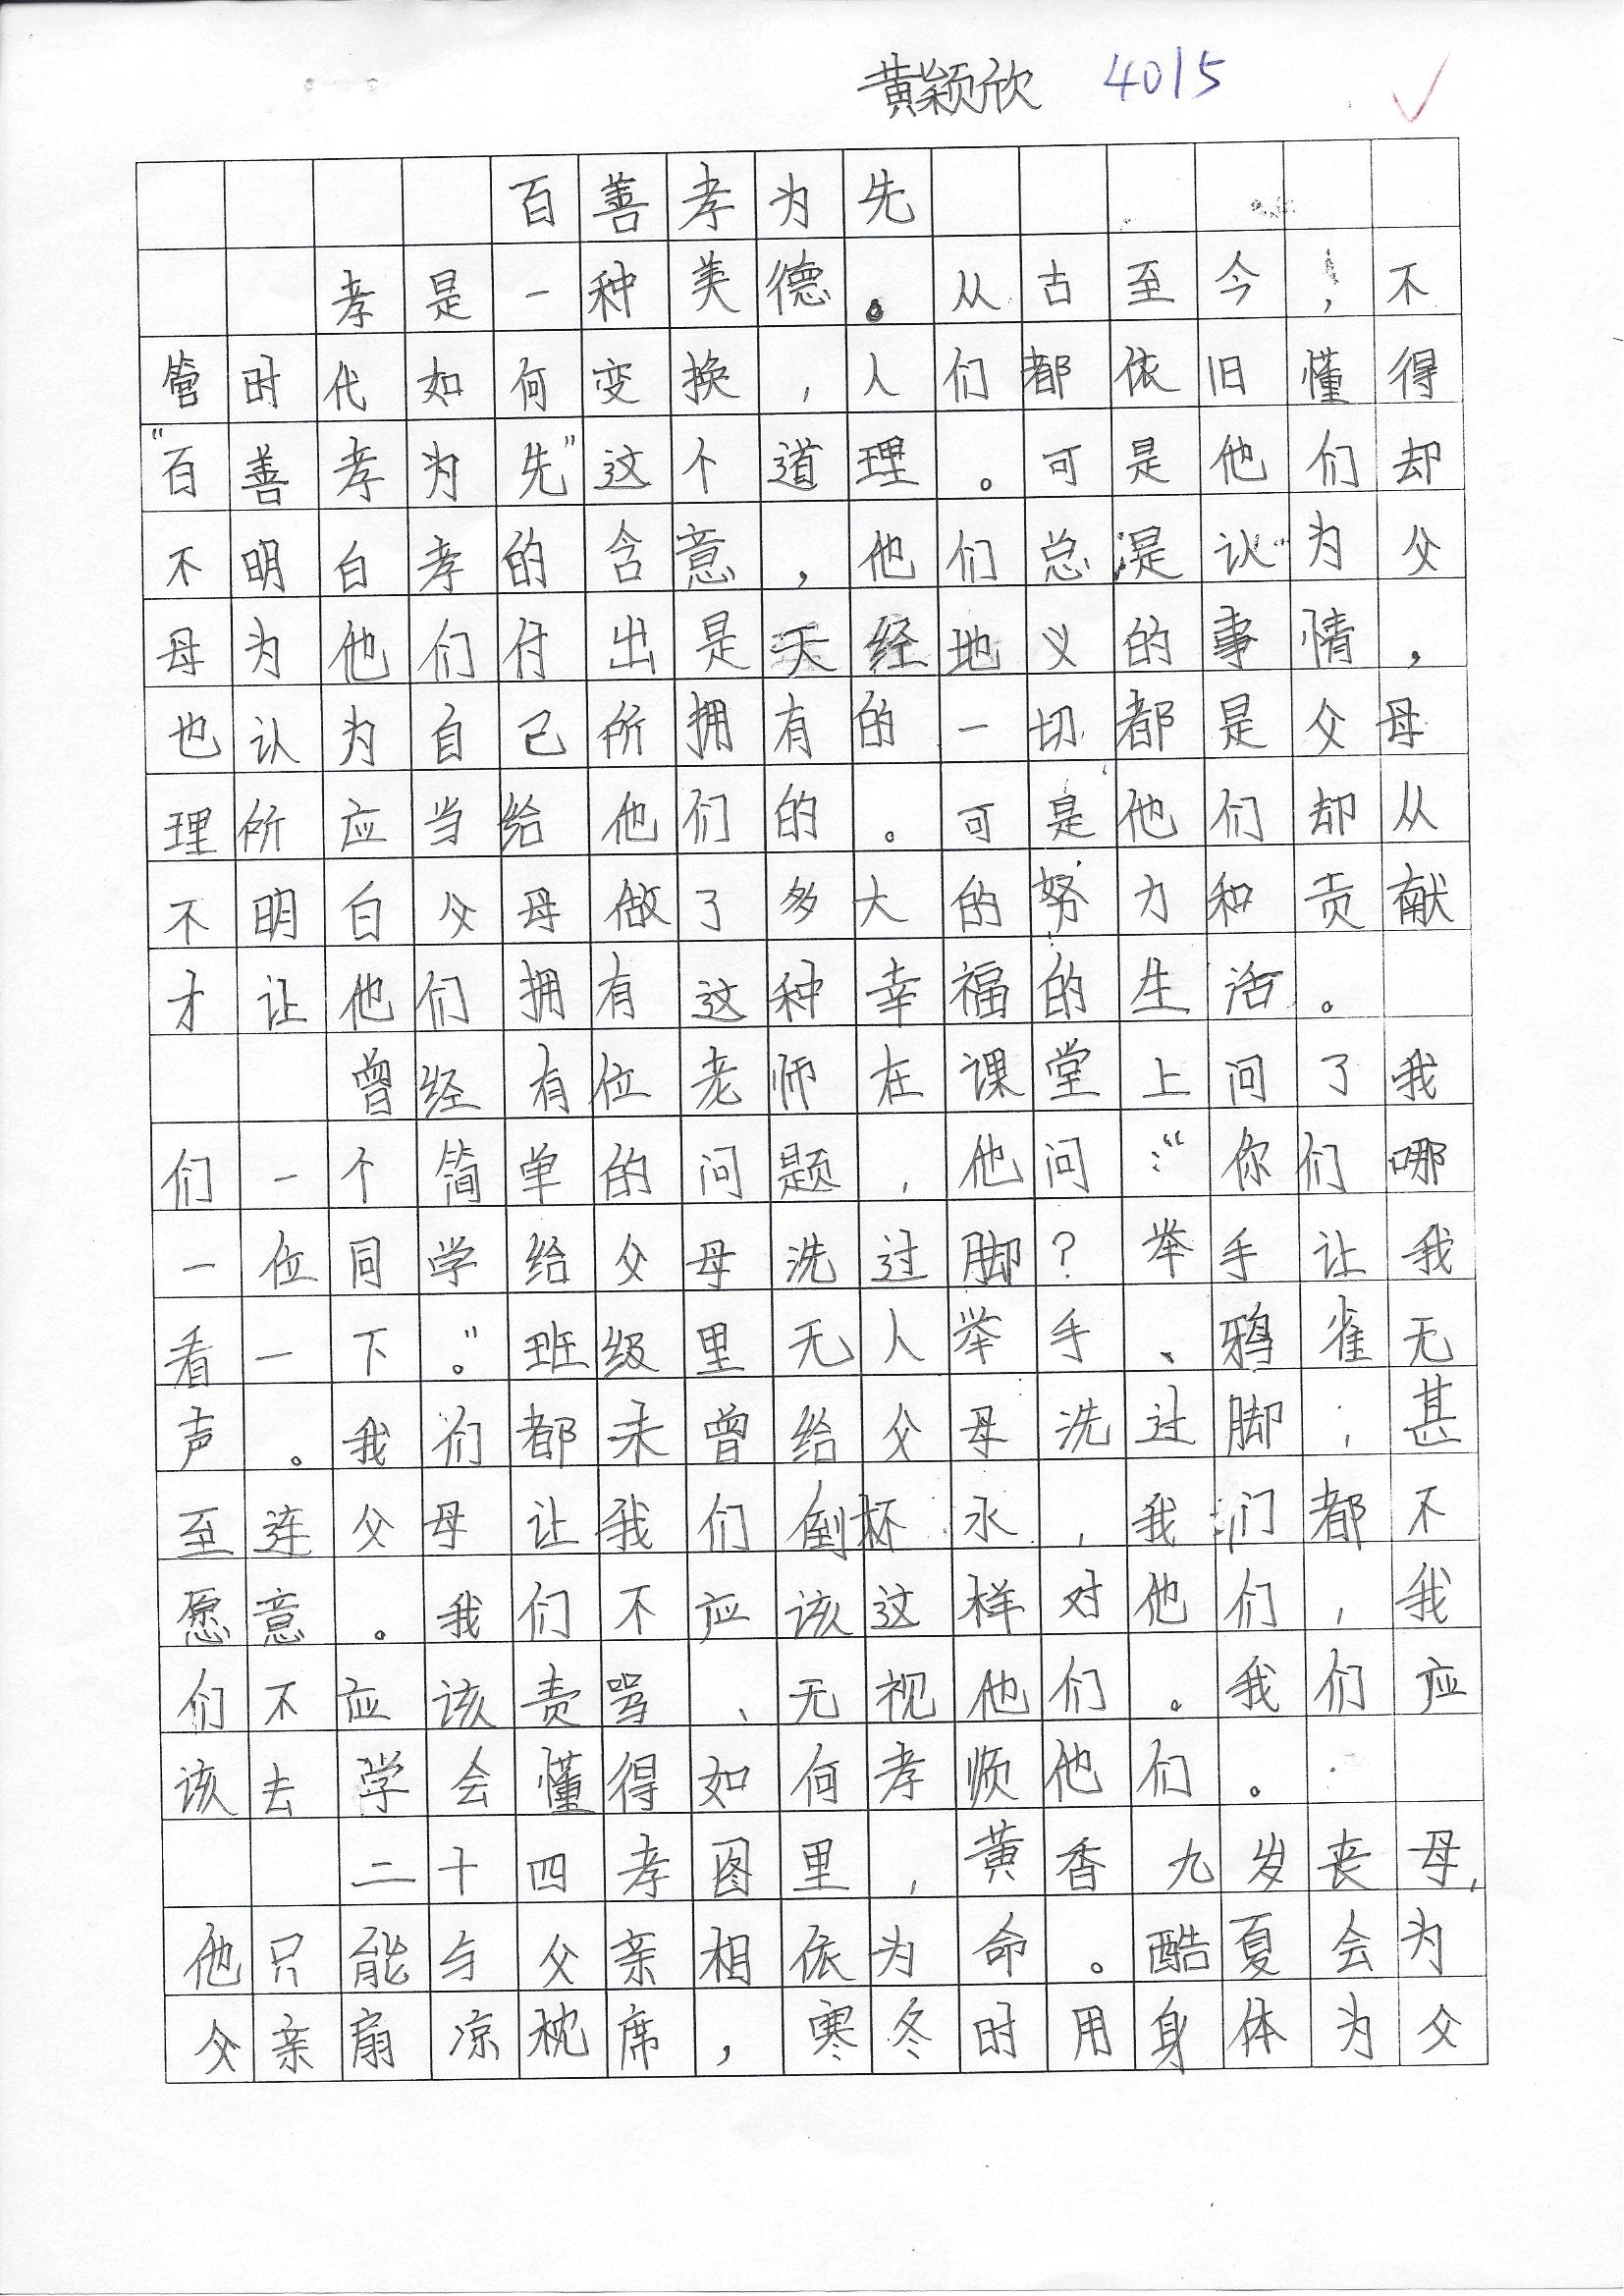 黄颖欣 4015
百善孝为先
孝是一种美德。从古至今，不
管时代如何变换，人们都依旧懂得
“百善孝为先”这个道理。可是他们却
不明白孝的含意，他们总是认为父
母为他们付出是天经地义的事情，
也认为自己所拥有的一切都是父母
理所应当给他们的。可是他们却从
不明白父母做了多大的努力和贡献
才让他们拥有这种幸福的生活。
曾经有位老师在课堂上问了我
们一个简单的问题，他问：“你们哪
一位同学给父母洗过脚？举手让我
看一下。”班级里无人举手、鸦雀无
声。我们都未曾给父母洗过脚，甚
至连父母让我们倒杯水，我们都不
愿意。我们不应该这样对他们，我
们不应该责骂、无视他们。我们应
该去学会懂得如何孝顺他们。
二十四孝图里，黄香九岁丧母，
他只能与父亲相依为命。酷夏会为
父亲扇凉枕席，寒冬时用身体为父